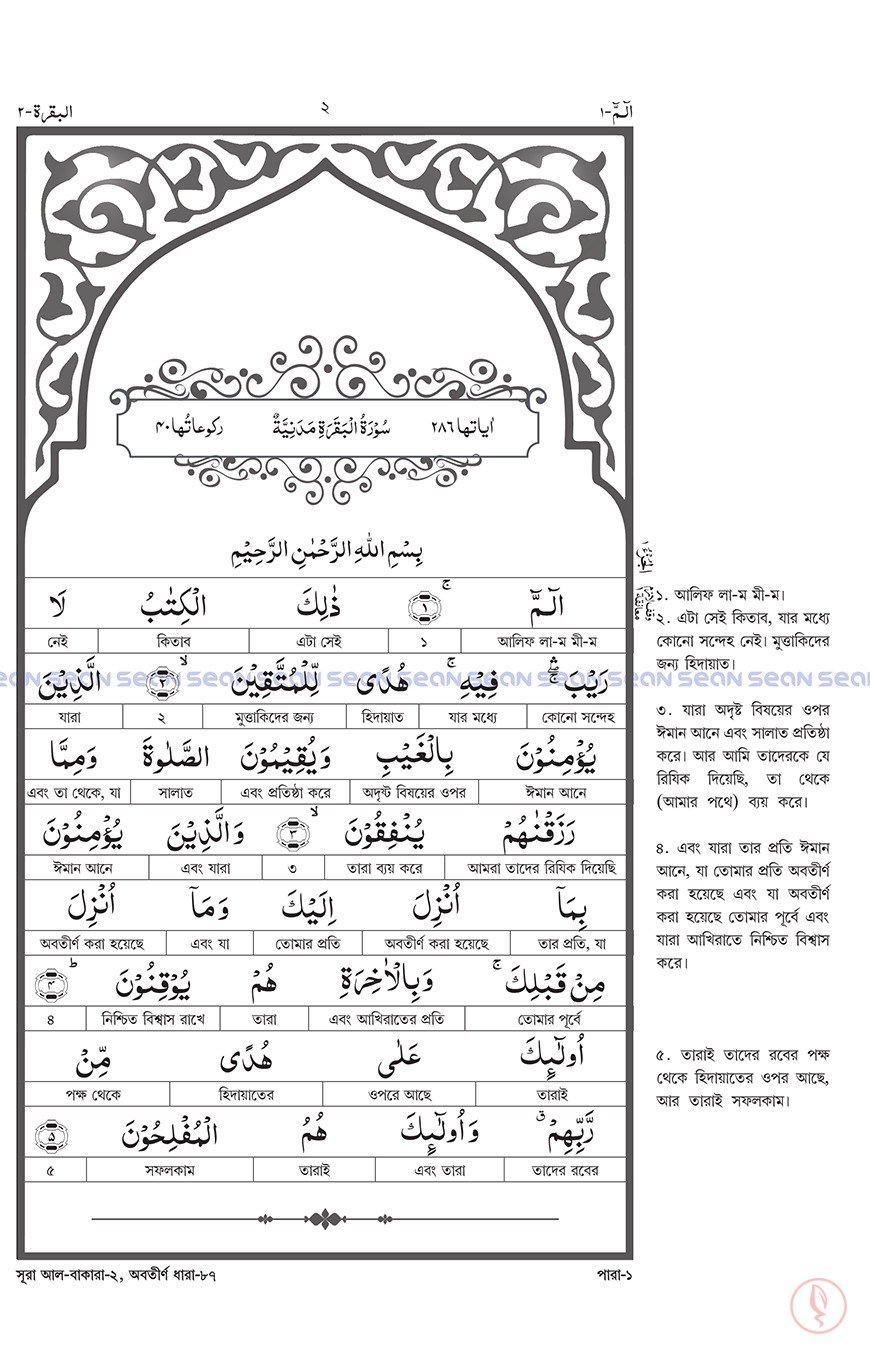 البقرة-٢ ২ الٓمّٓ-١
اٰیاتها ٢٨٦ سُوۡرَةُ الۡبَقَرَةِ مَدَنِیَّةٌ رکوعاتُها ٤٠
بِسۡمِ اللّٰهِ الرَّحۡمٰنِ الرَّحِیۡمِ
الٓـمّٓ ۚ ﴿١﴾ ذٰلِكَ الۡكِتٰبُ لَا
আলিফ লা-ম মী-ম ১ এটা সেই কিতাব নেই
رَیۡبَ ۚۖۛ فِیۡهِ ۚۛ هُدًی لِّلۡمُتَّقِیۡنَ ۙ ﴿٢﴾ الَّذِیۡنَ
কোনো সন্দেহ যার মধ্যে হিদায়াত মুত্তাকিদের জন্য ২ যারা
یُؤۡمِنُوۡنَ بِالۡغَیۡبِ وَیُقِیۡمُوۡنَ الصَّلٰوةَ وَمِمَّا
ঈমান আনে অদৃষ্ট বিষয়ের ওপর এবং প্রতিষ্ঠা করে সালাত এবং তা থেকে, যা
رَزَقۡنٰهُمۡ یُنۡفِقُوۡنَ ۙ ﴿٣﴾ وَالَّذِیۡنَ یُؤۡمِنُوۡنَ
আমরা তাদের রিযিক দিয়েছি তারা ব্যয় করে ৩ এবং যারা ঈমান আনে
بِمَاۤ اُنۡزِلَ اِلَیۡكَ وَمَاۤ اُنۡزِلَ
তার প্রতি, যা অবতীর্ণ করা হয়েছে তোমার প্রতি এবং যা অবতীর্ণ করা হয়েছে
مِنۡ قَبۡلِكَ ۚ وَبِالۡاٰخِرَةِ هُمۡ یُوۡقِنُوۡنَ ؕ ﴿٤﴾
তোমার পূর্বে এবং আখিরাতের প্রতি তারা নিশ্চিত বিশ্বাস রাখে ৪
اُولٰٓئِكَ عَلٰی هُدًی مِّنۡ
তারাই ওপরে আছে হিদায়াতের পক্ষ থেকে
رَّبِّهِمۡ ٭ وَاُولٰٓئِكَ هُمُ الۡمُفۡلِحُوۡنَ ﴿٥﴾
তাদের রবের এবং তারা তারাই সফলকাম ৫
১. আলিফ লা-ম মী-ম।
২. এটা সেই কিতাব, যার মধ্যে
কোনো সন্দেহ নেই। মুত্তাকিদের
জন্য হিদায়াত।
৩. যারা অদৃষ্ট বিষয়ের ওপর
ঈমান আনে এবং সালাত প্রতিষ্ঠা
করে। আর আমি তাদেরকে যে
রিযিক দিয়েছি, তা থেকে
(আমার পথে) ব্যয় করে।
৪. এবং যারা তার প্রতি ঈমান
আনে, যা তোমার প্রতি অবতীর্ণ
করা হয়েছে এবং যা অবতীর্ণ
করা হয়েছে তোমার পূর্বে এবং
যারা আখিরাতে নিশ্চিত বিশ্বাস
করে।
৫. তারাই তাদের রবের পক্ষ
থেকে হিদায়াতের ওপর আছে,
আর তারাই সফলকাম।
সূরা আল-বাকারা-২, অবতীর্ণ ধারা-৮৭ পারা-১
sean sean sean sean sean sean sean sean sean sean sean sean sean